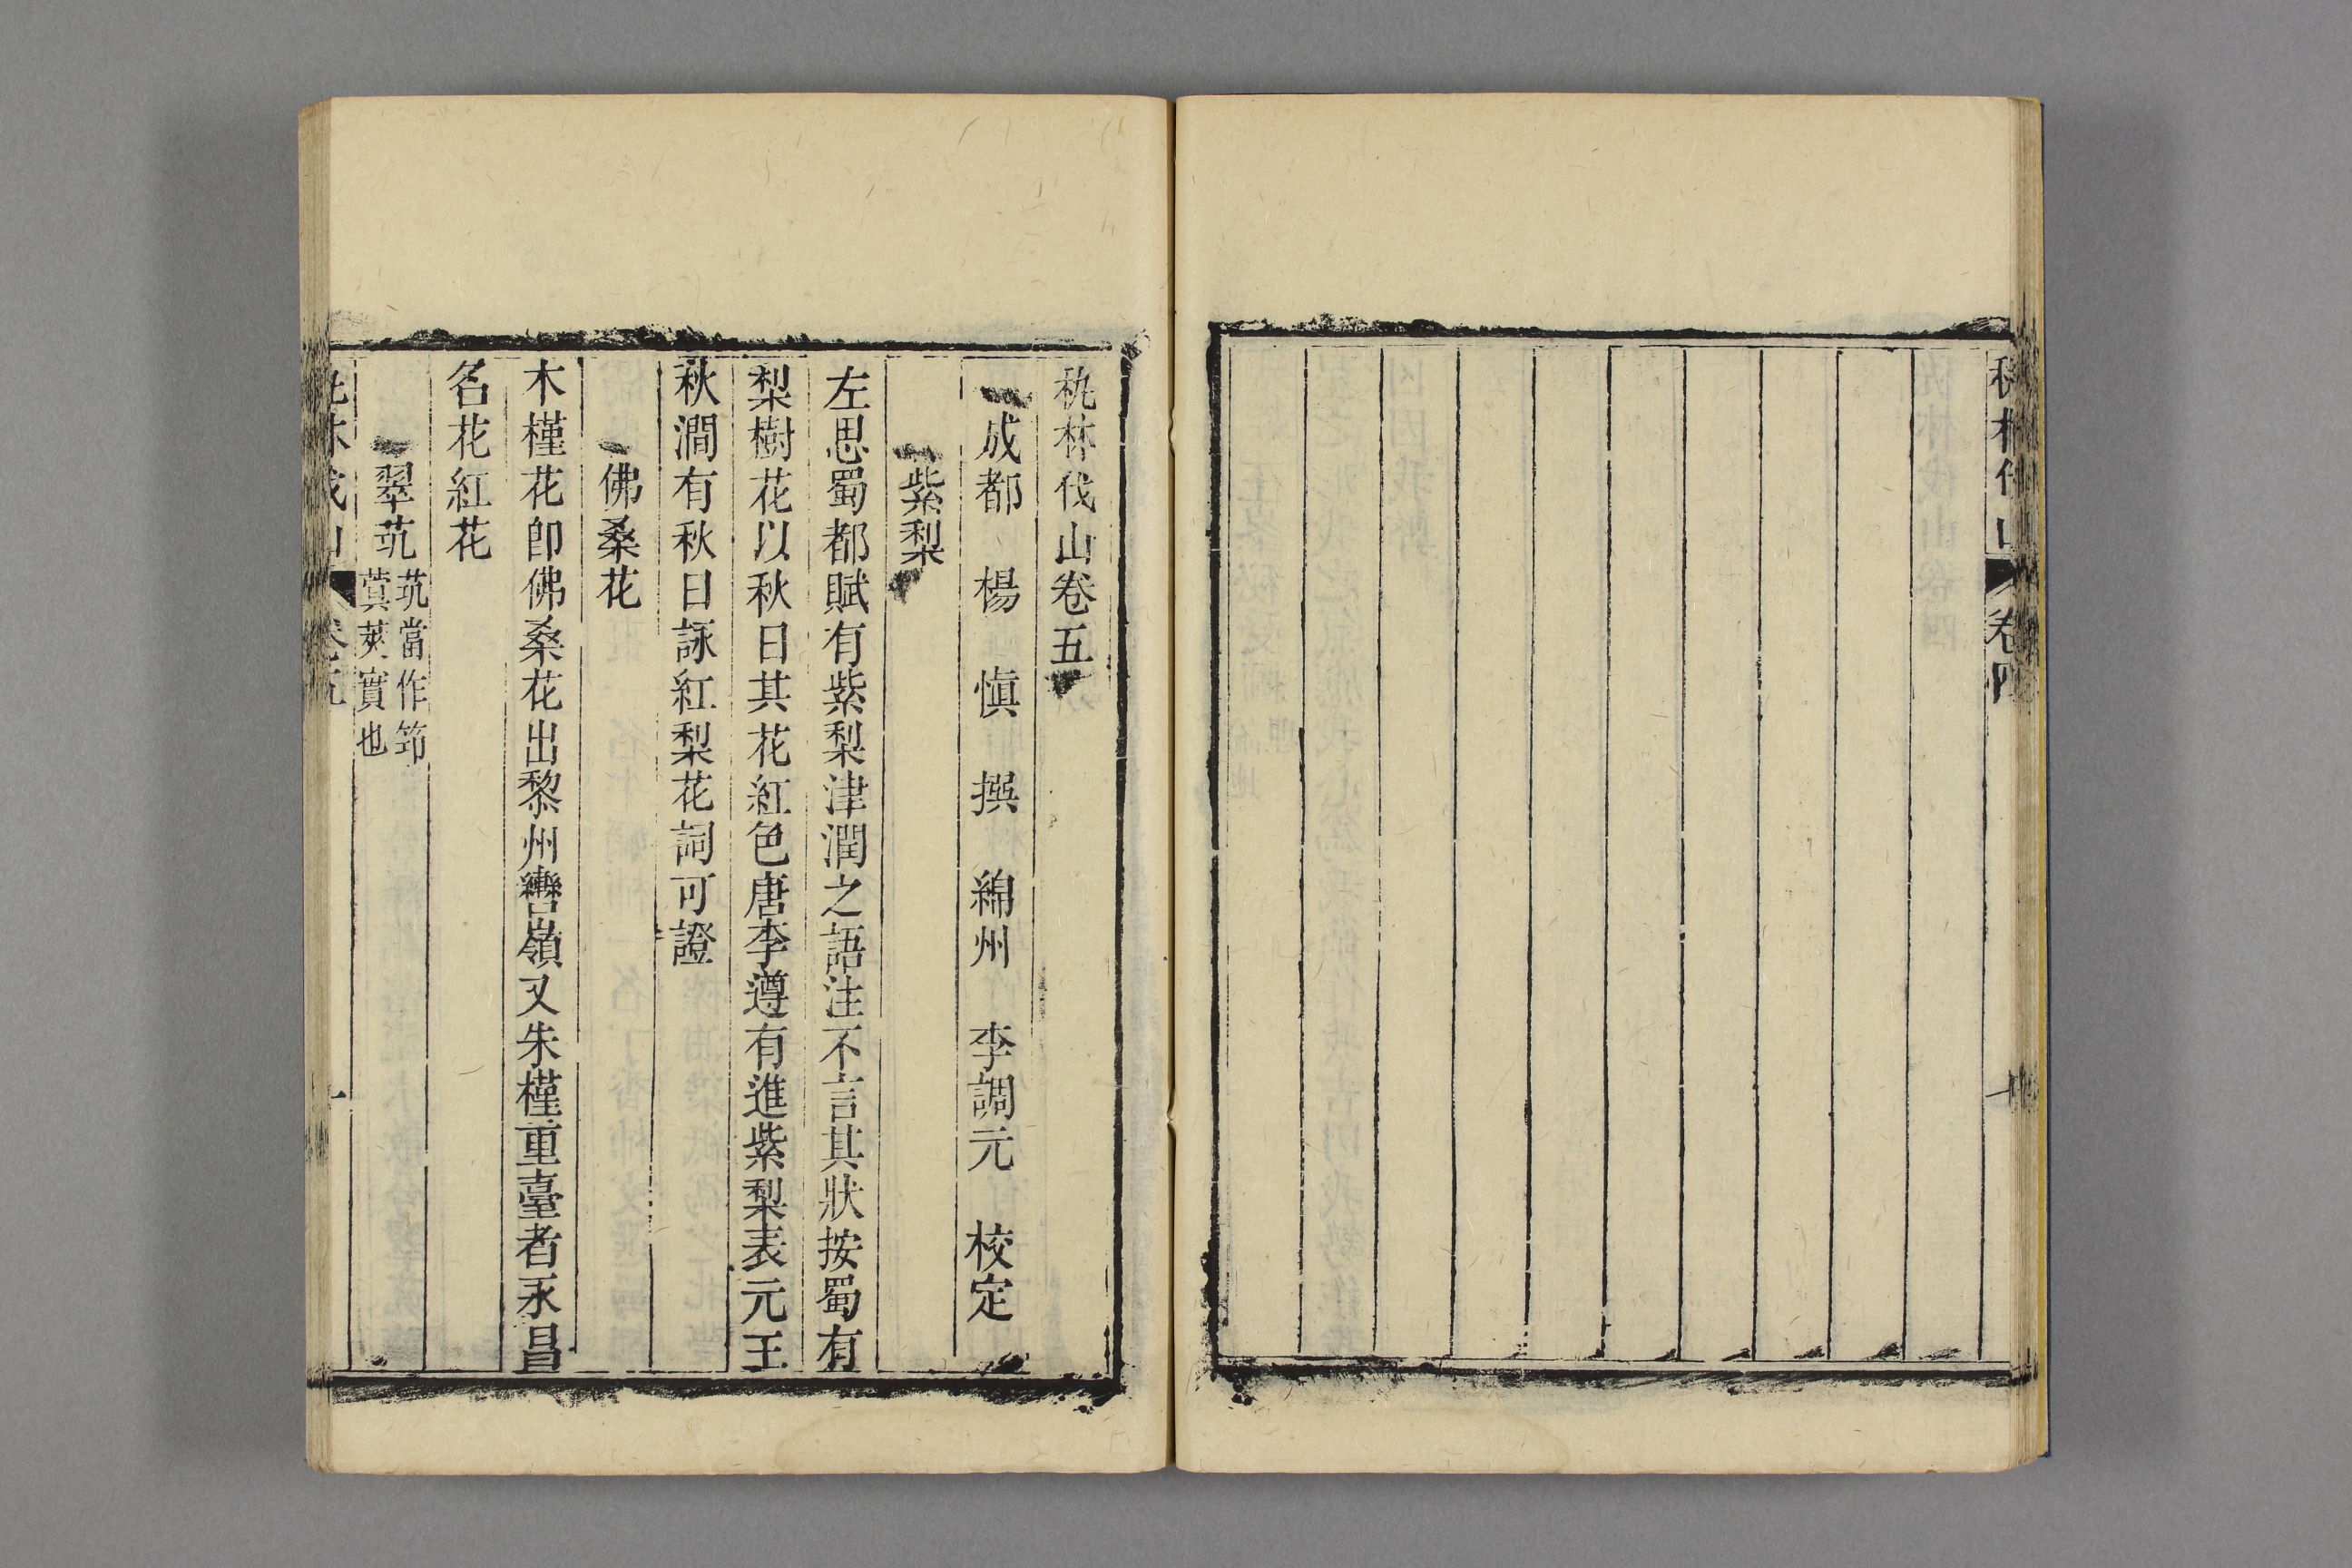 卷四
秇林伐山卷五
成都 楊 慎 撰 綿州 李調元 校定
紫梨
左思蜀都賦有紫梨津潤之語注不言其狀按蜀有
梨樹花以秋日其花紅色唐李遵有進紫梨表元王
秋澗有秋日詠紅梨花詞可證
佛桑花
木槿花卽佛桑花出黎州巒嶺又朱槿重臺者永昌
名花紅花
翠茿 茿當作筇
蓂莢實也